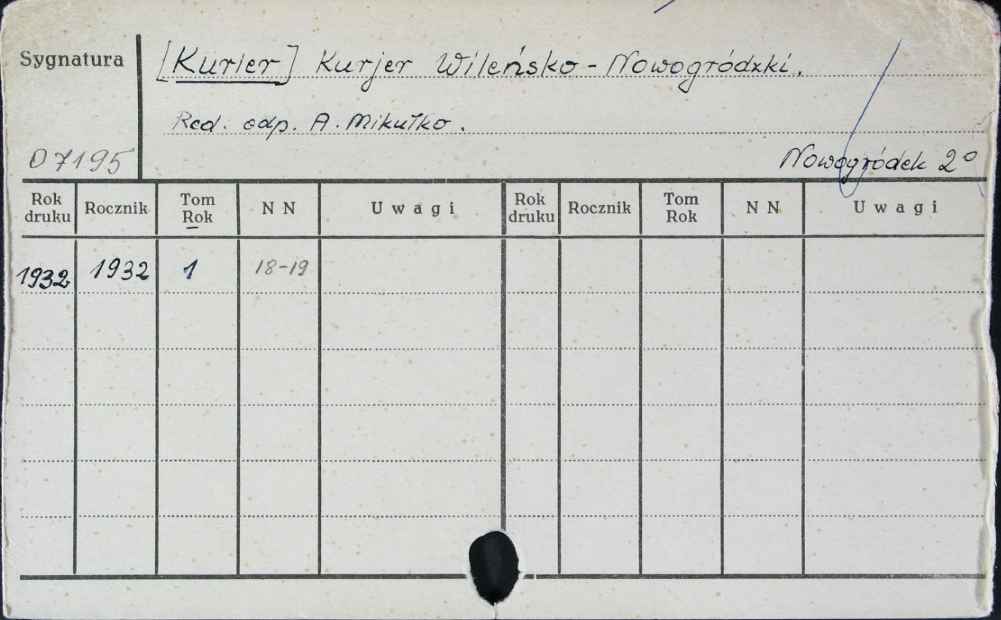 Sygnatura [Kurier] Kurjer Wileńsko - Nowogródzki.
Red. odp. A. Mikułko.
07195 Nowogródek 2°
Rok druku Rocznik Tom Rok NN Uwagi Rok druku Rocznik Tom Rok NN Uwagi
1932 1932 1 18-19